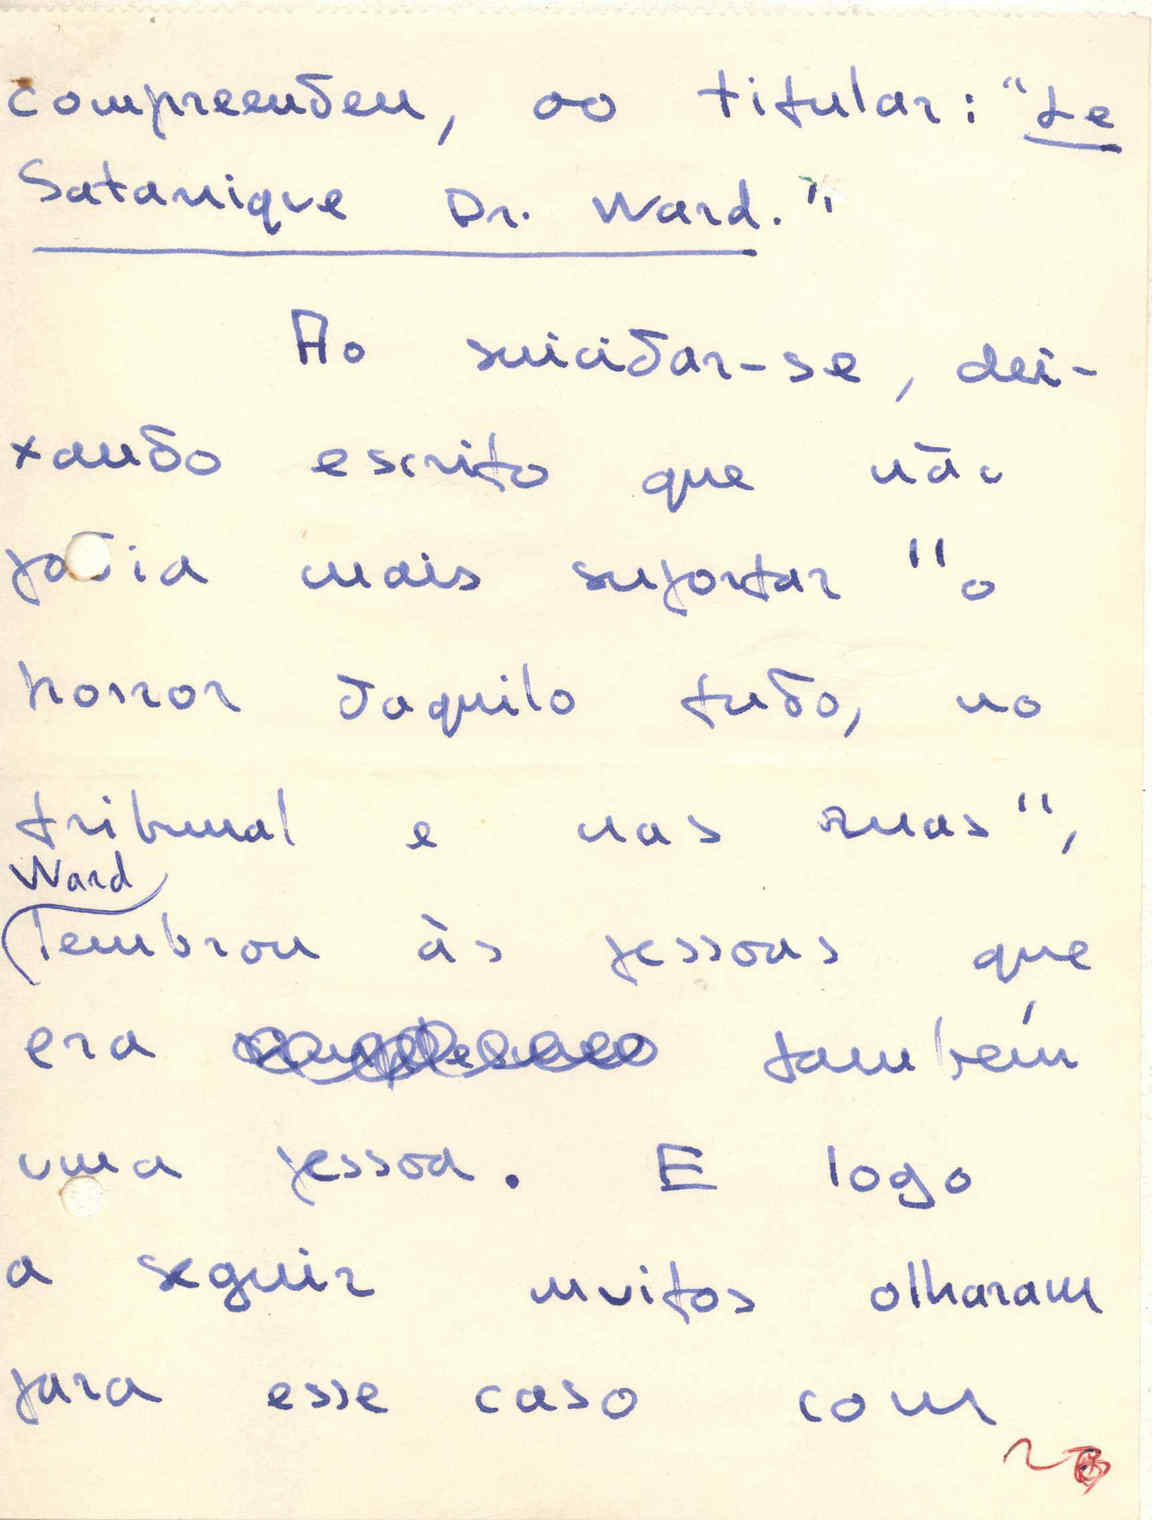 compreendeu, ao titular: "Le
Satanique Dr. Ward."
Ao suicidar-se, dei-
xando escrito que não
podia mais suportar "o
horror daquilo tudo, no
tribunal e nas ruas",
Ward
lembrou às pessoas que
era também
uma pessoa. E logo
a seguir muitos olharam
para esse caso com